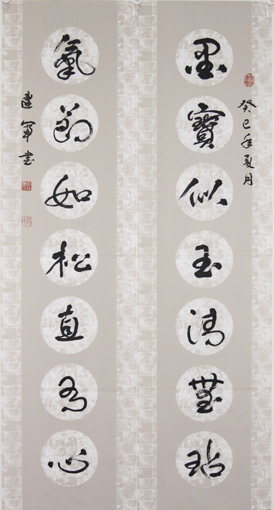 癸巳年夏月
墨寶似玉清無玷
氣節如松直有心
建軍書